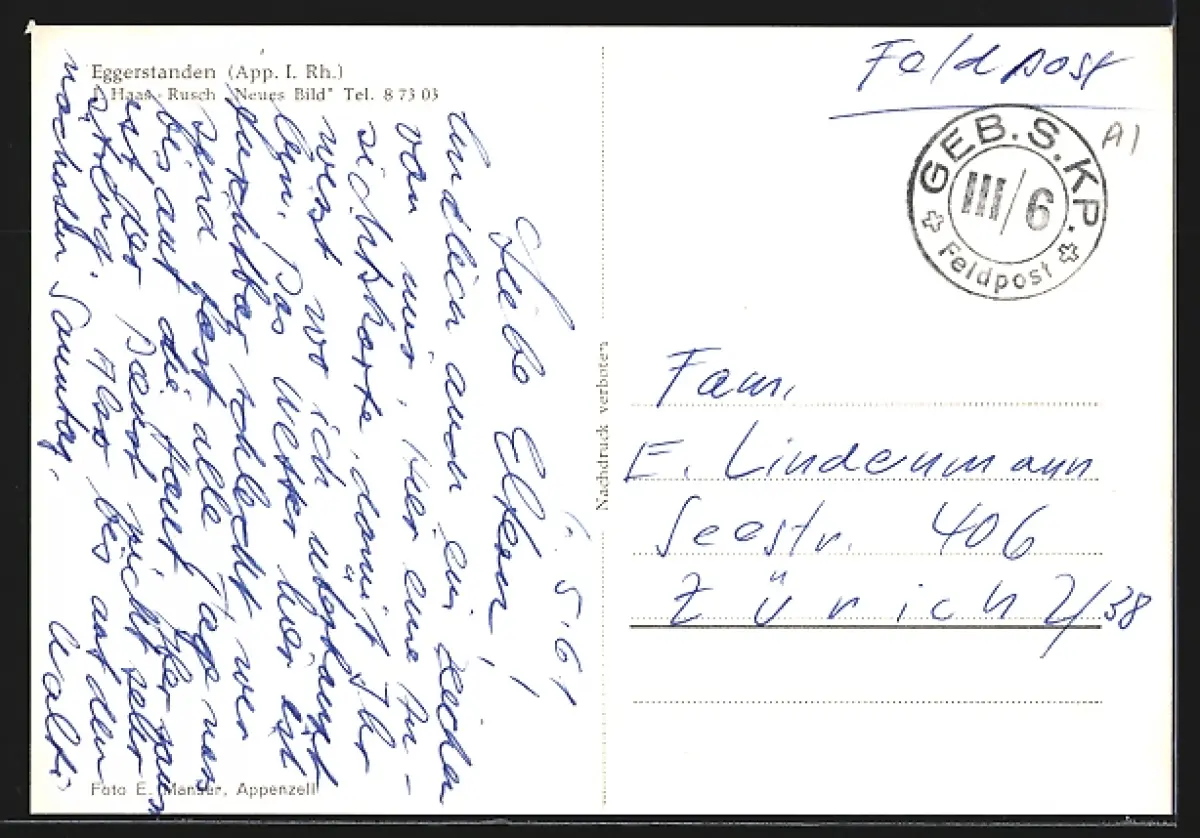 Eggerstanden (App. I. Rh.)
J. Haas-Rusch "Neues Bild" Tel. 8 73 03
5. 61
Liebe Eltern!
Endlich auch ein Zeichen
von mir. Hier eine An-
sichtskarte, damit Ihr
wisst wo ich überhaupt
bin. Das Wetter hier ist
furchtbar schlecht, wir
sind fast alle Tage nass
bis auf die Haut. Hier
ist der Dienst nicht sehr
streng. Also bis auf den
nächsten Samstag.
Walti
Foto E. Manser, Appenzell
Nachdruck verboten
Feldpost
A1
GEB. S. KP.
III/6
Feldpost
Fam.
E. Lindenmann
Seestr. 406
Zürich 2/38